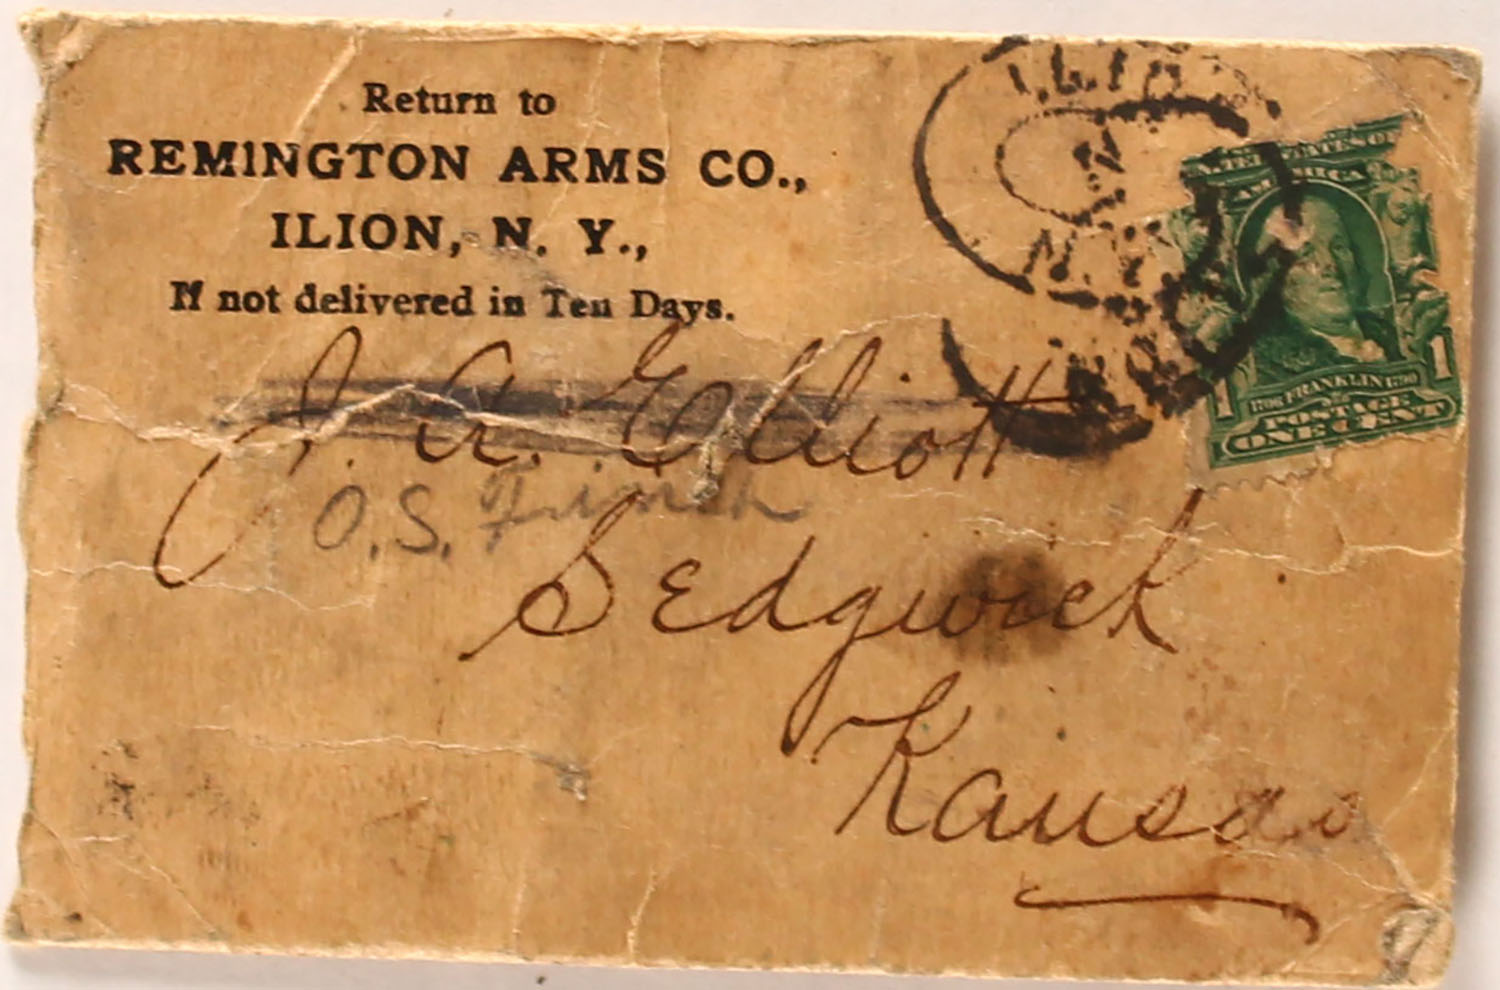 Return to
REMINGTON ARMS CO.,
ILION, N. Y.,
If not delivered in Ten Days.
ILION
N.Y.
UNITED STATES OF
AMERICA
1706 FRANKLIN 1790
1 1
POSTAGE
ONE CENT
J. A. Elliott
O.S. Finch
Sedgwick
Kansas